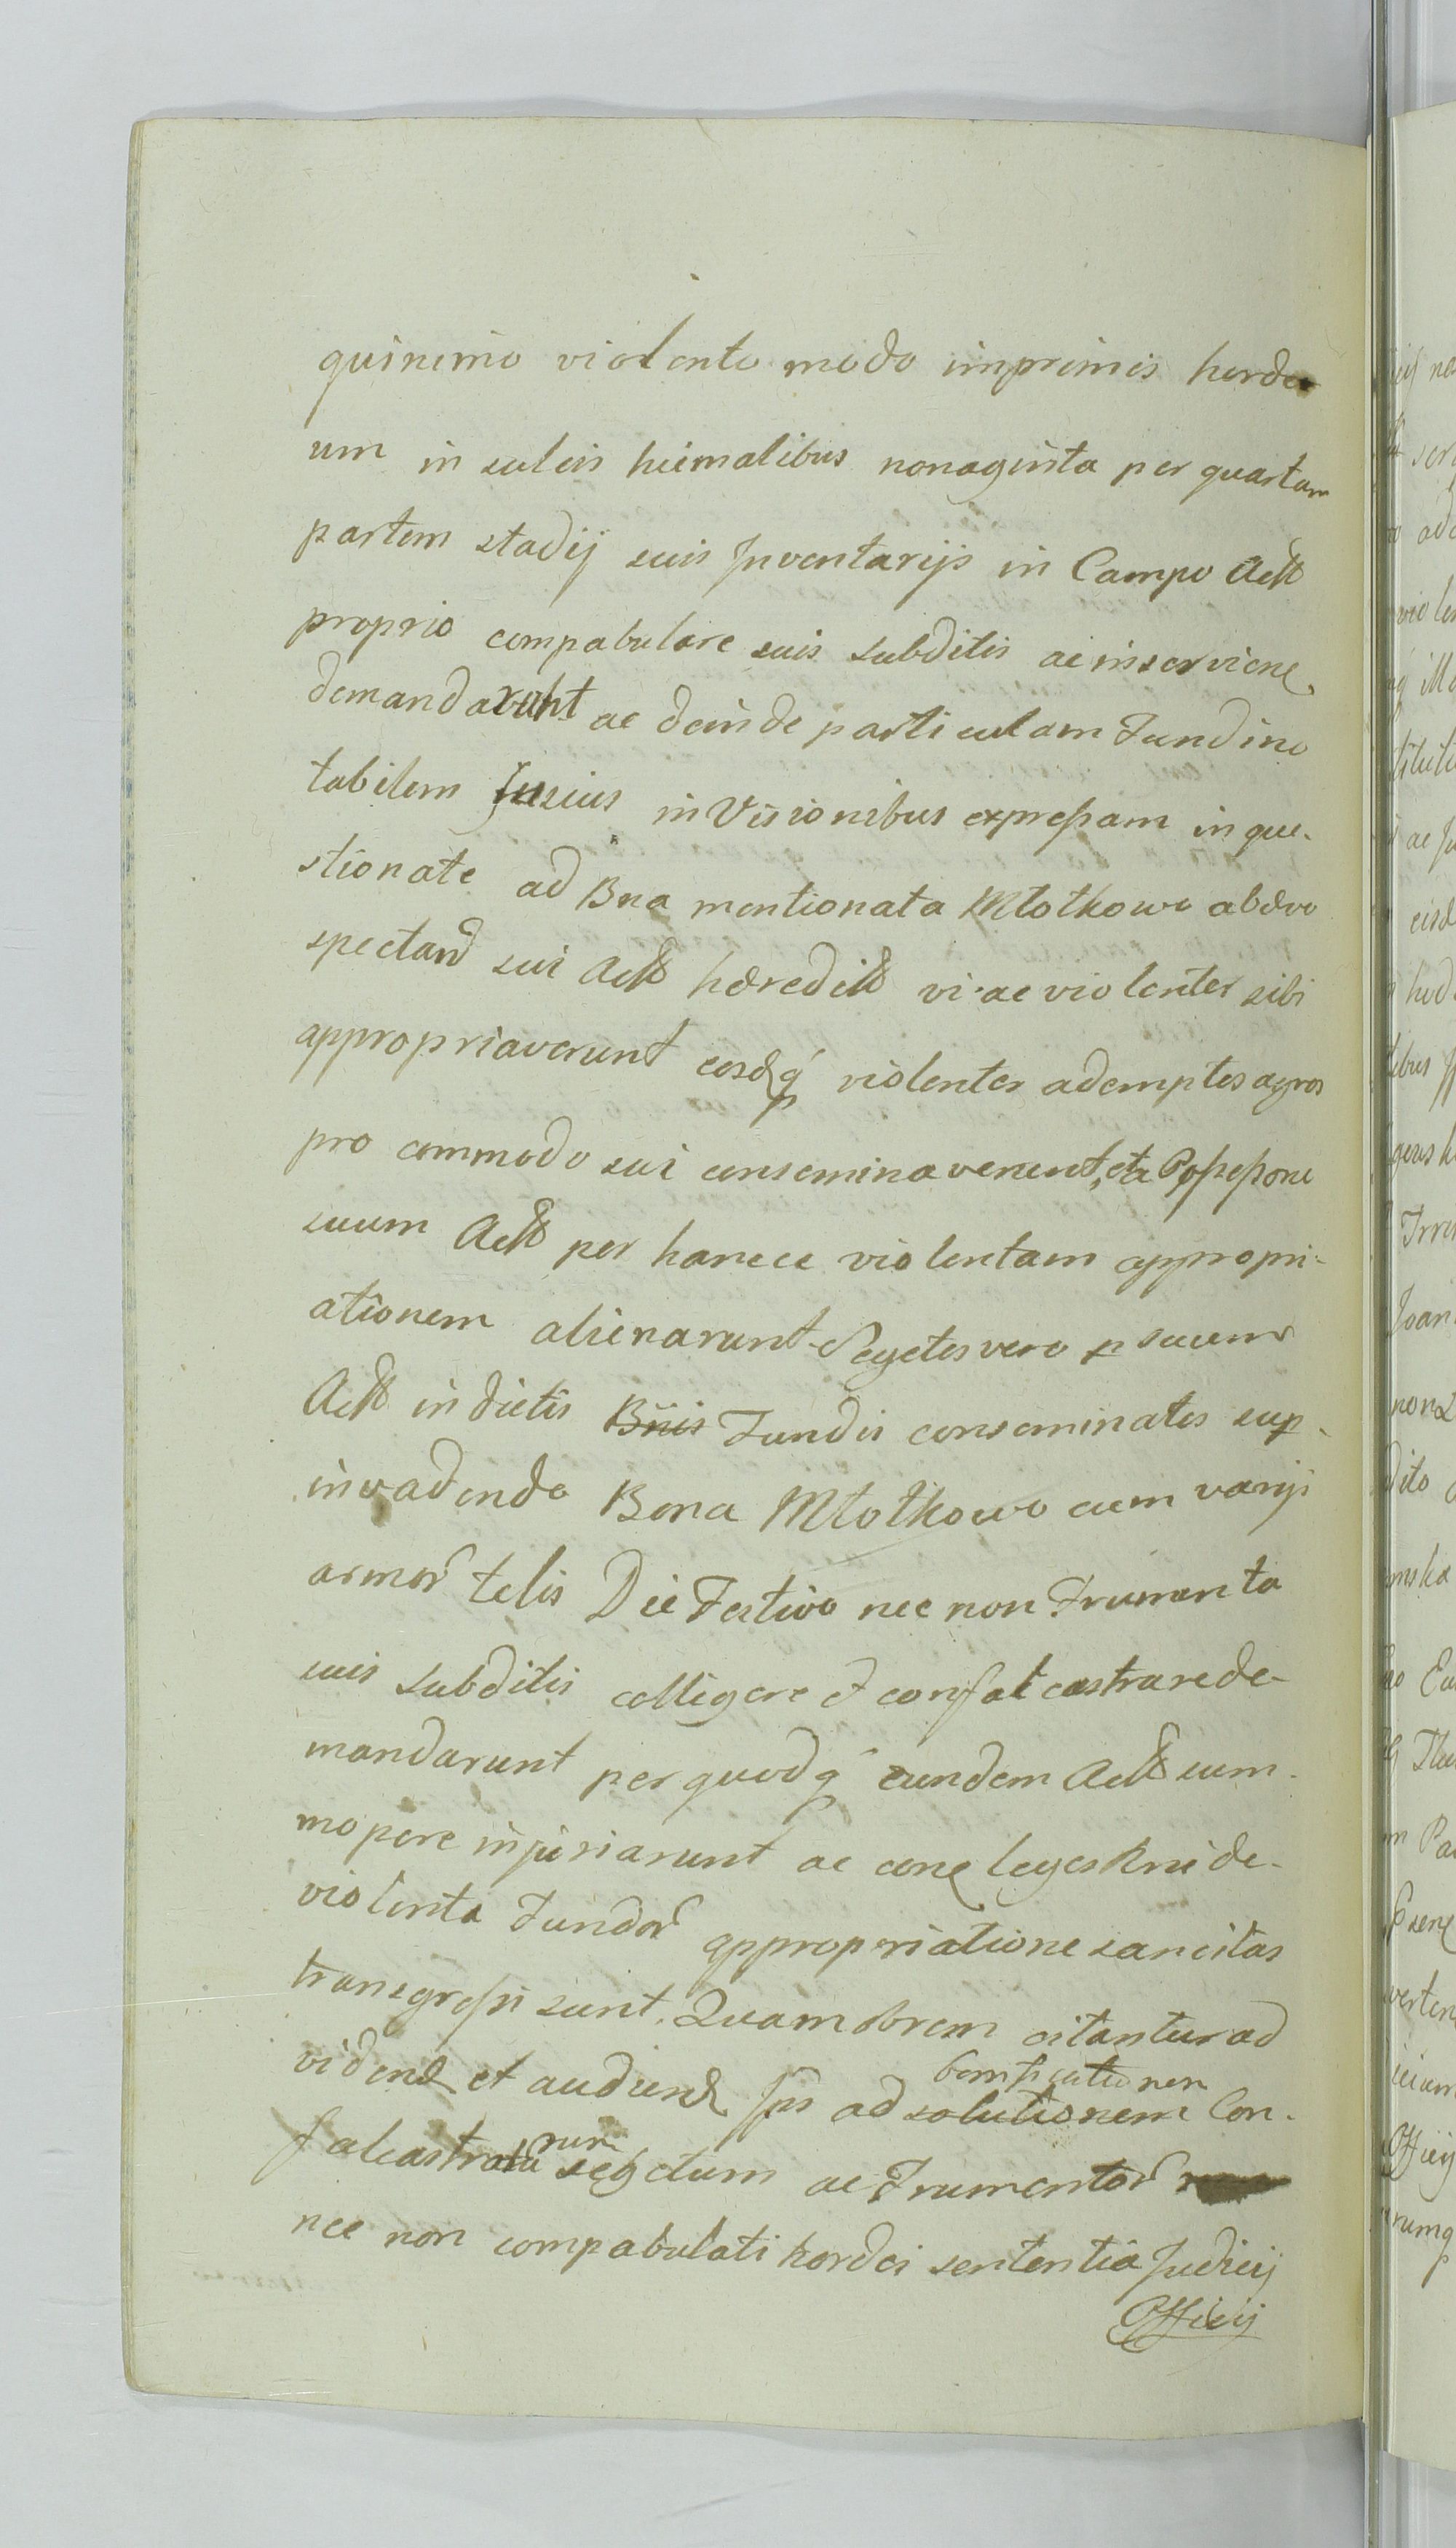 quinimo violento modo imprimis horde
um in sulcis hiemalibus nonaginta per quartam
partem stadij suis Inventarijs in Campo Actt
proprio compabulare suis subditis ac inserviene
demandarunt ac deinde particulam Fundi no
tabilem fusius in Visionibus expressam in que-
stionate ad Bna mentionata Młotkowo ab ævo
spectand sui Actt hæreditt vi ac violenter sibi
appropriaverunt eosdq violenter ademptos agros
pro commodo sui conseminaverunt, et a Possessone
suum Actt per hancce violentam appropri-
ationem alienarunt Segetes vero p suum
Actt in dictis Bnis Fundis conseminatas sup
invadendo Bona Młotkowo cum varijs
armor telis Die Festivo nec non Frumenta
suis subditis colligere et confalcastrare de-
mandarunt per quodq eundem Actt sum-
mopere injuriarunt ac conq leges Rni de
violenta Fundor appropriatione sancitas
transgressi sunt. Quamobrem citantur ad
vidend et audiend Ips ad solutionem Con-
bonificationem
falcastratarum segetum ac Frumentor
nec non compabulati hordei sententia Judicij
Officij